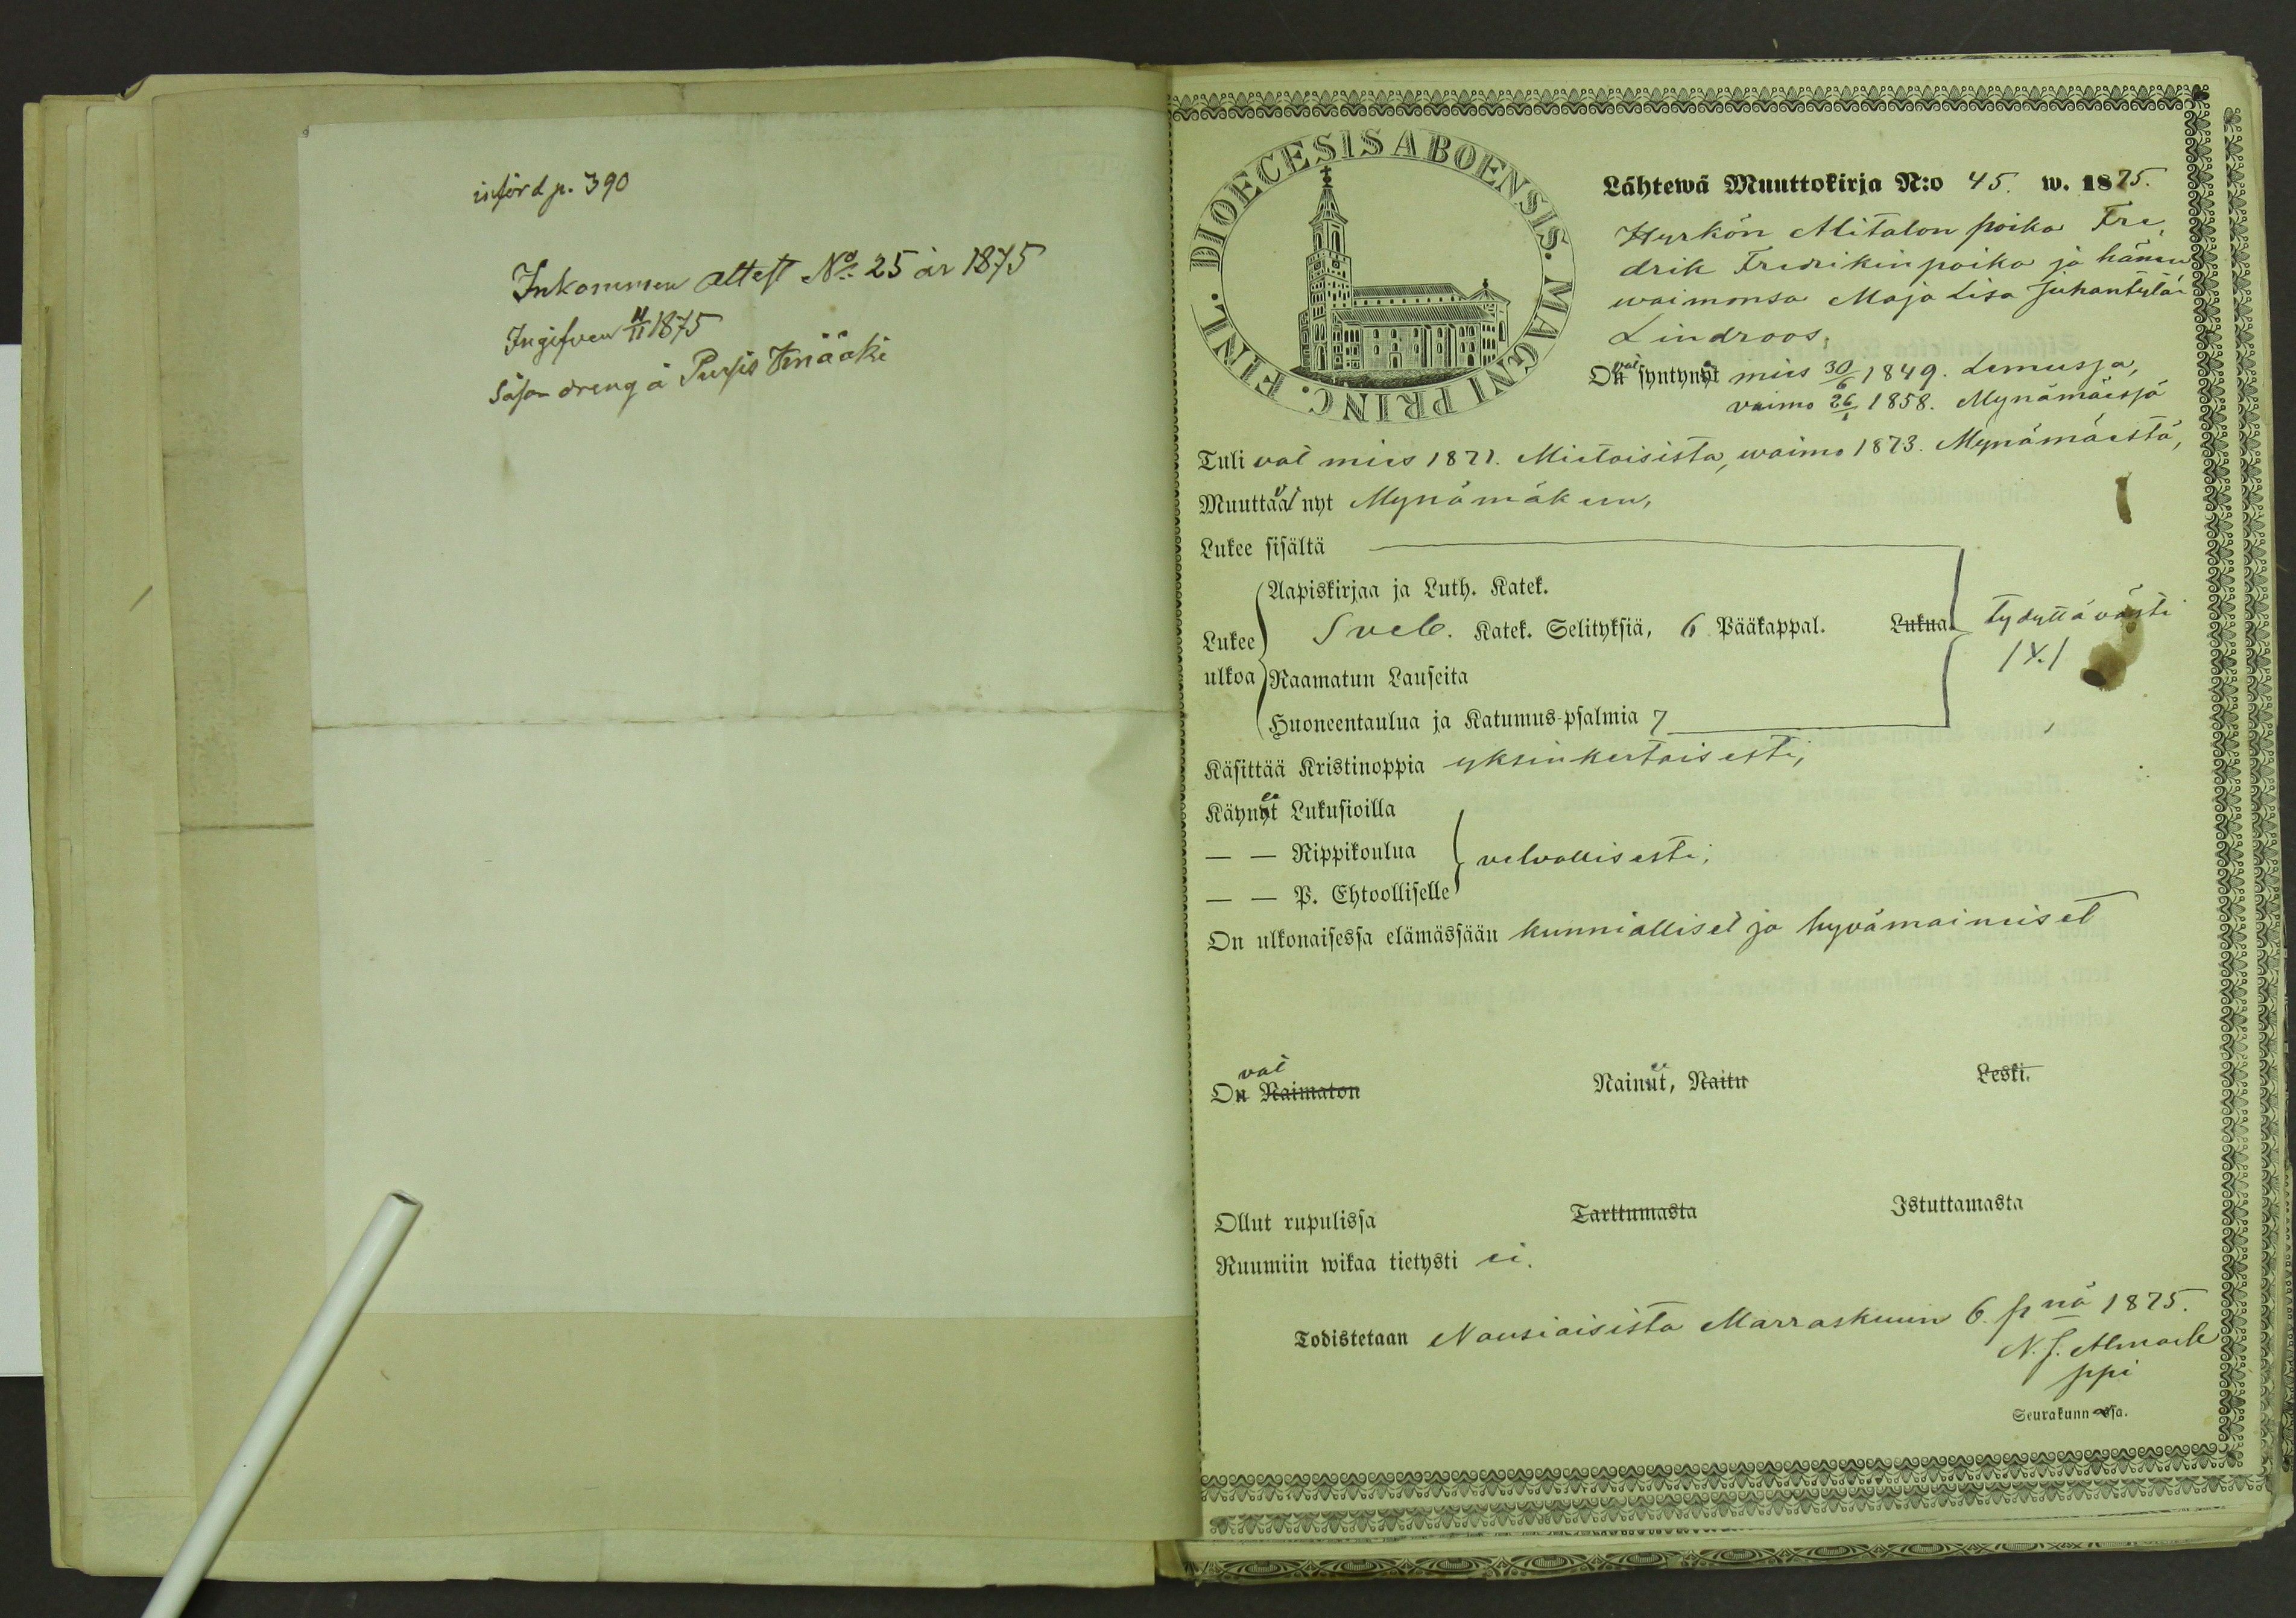 införd p. 390
Inkommen attest No 25 år 1875
Ingifven 11/11 1875
såsom dreng å Pursis
DIOECESIS ABOENSIS. MAGNI PRINC. FINL.
Lähtewä Muuttokirja N:o 45. w. 1875.
Hyrkön Alitalon poika Fre,
drik Fredrikinpoika ja hänen
waimonsa Maja Lisa Juhantytär
Lindroos,
Ovat syntyneet mies 30/6 1849. Lemussa,
vaimo 26/1 1858. Mynämäessä
Tulivat mies 1871. Mietoisista, waimo 1873. Mynämäestä,
Muuttavat nyt Mynämäkeen,
Lukee sisältä
Aapiskirjaa ja Luth. Katek.
Lukee ulkoa Sveb. Katek. Selityksiä, 6 Pääkappal. Lukua. tydyttävästi
Raamatun Lauseita
Huoneentaulua ja Katumus-psalmia 7
Käsittää Kristinoppia yksinkertaisesti,
Käyneet Lukusioilla
— — Rippikoulua
— — P. Ehtoolliselle velvollisesti,
On ulkonaisessa elämässään kunnialliset ja hyvämainiset
Ovat Naimaton Naineet, Naitu Leski.
Ollut rupulissa Tarttumasta Istuttamasta
Ruumiin wikaa tietysti ei.
Todistetaan Nousiaisista Marraskuun 6. p nä 1875.
N. J.
ppi
Seurakunnassa.